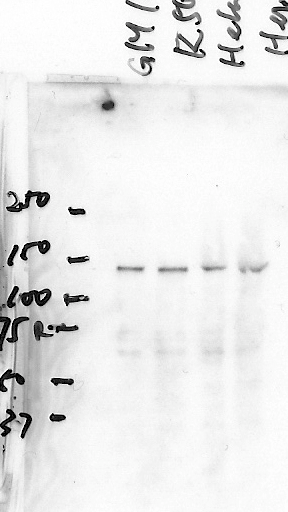 GM1
K56
Hela
He
250
150
100
75 R
50
37